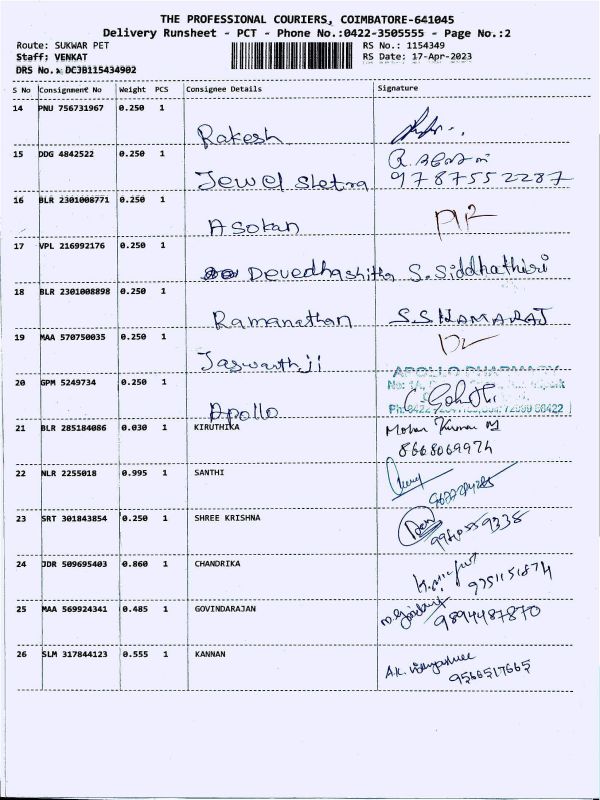 THE PROFESSIONAL COURIERS, COIMBATORE-641045
Delivery Runsheet - PCT - Phone No.:0422-3505555 - Page No.:2
Route: SUKWAR PET
RS No.: 1154349
Staff: VENKAT
RS Date: 17-Apr-2023
DRS No.: DCJB115434902
S No Consignment No Weight PCS Consignee Details Signature
14 PNU 756731967 0.250 1
Rakesh
15 DDG 4842522 0.250 1
Jewel
9787552287
16 BLR 2301008771 0.250 1
Asokan
17 VPL 216992176 0.250 1
S. Siddhathiri
18 BLR 2301008898 0.250 1
Ramanathan S.S KAMARAJ
19 MAA 570750035 0.250 1
Jaswanth ji
20 GPM 5249734 0.250 1
APOLLO PHARMACY
Apollo
21 BLR 285184086 0.030 1 KIRUTHIKA
Mohan Kumar M
8668069974
22 NLR 2255018 0.995 1 SANTHI
23 SRT 301843854 0.250 1 SHREE KRISHNA
24 JDR 509695403 0.860 1 CHANDRIKA
9751151874
25 MAA 569924341 0.485 1 GOVINDARAJAN
9894487870
26 SLM 317844123 0.555 1 KANNAN
9566517665